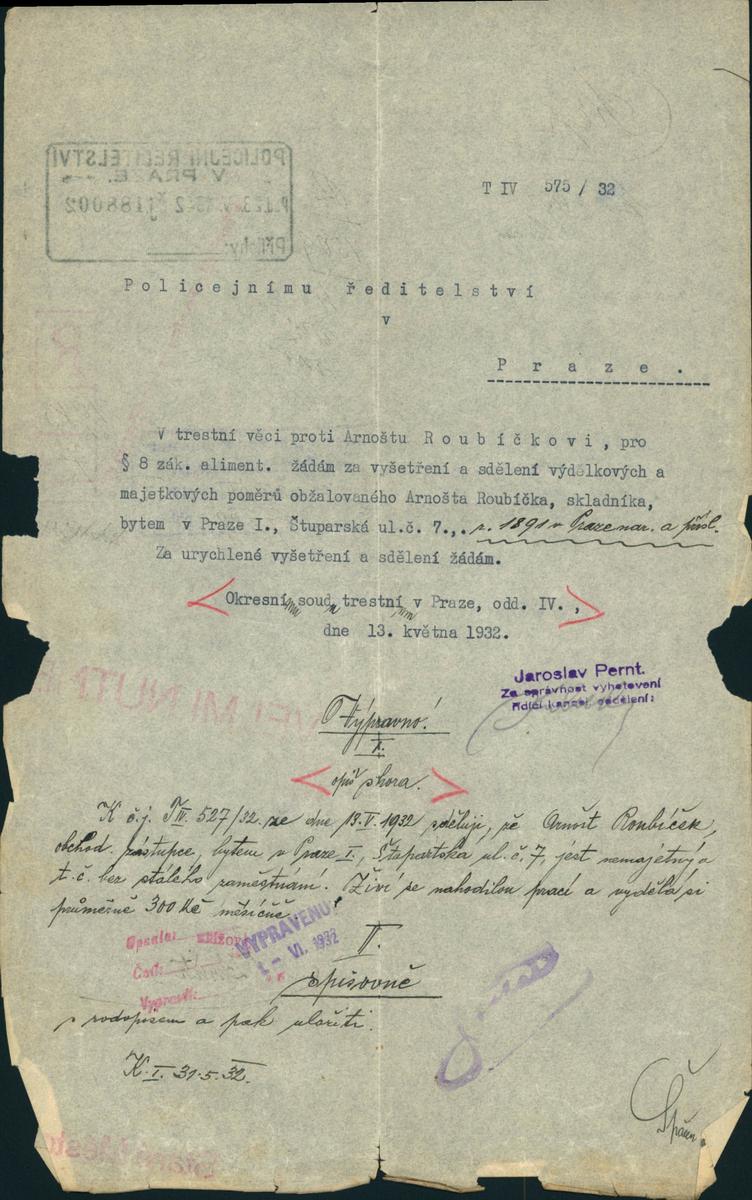 T IV 575 / 32
POLICEJNÍ ŘEDITELSTVÍ
V PRAZE.
Přílohy:
Policejnímu ředitelství
v
Praze.
V trestní věci proti Arnoštu Roubíčkovi, pro
§ 8 zák. aliment. žádám za vyšetření a sdělení výdělkových a
majetkových poměrů obžalovaného Arnošta Roubíčka, skladníka,
bytem v Praze I., Štuparská ul.č. 7.,. r. 1891 v Praze nar. a přísl.
Za urychlené vyšetření a sdělení žádám.
Okresní soud trestní v Praze, odd. IV.,
dne 13. května 1932.
Jaroslav Pernt.
Za správnost vyhotovení
řídící kancel. oddělení:
Výpravno!
I.
opiš shora.
K č.j. T IV. 527/32 ze dne 13.V.1932 sděluji, že Arnošt Roubíček,
obchod. zástupce, bytem v Praze I, Štupartská ul. č. 7, jest nemajetný a
t.č. bez stálého zaměstnání. Živí se nahodilou prací a vydělá si
průměrně 300 Kč měsíčně.
Opsala:
Čtli:
Vypravil:
VYPRAVENO
VI. 1932
II.
Spisovně
s rodopisem a pak uložiti.
K. I. 31.5.32.